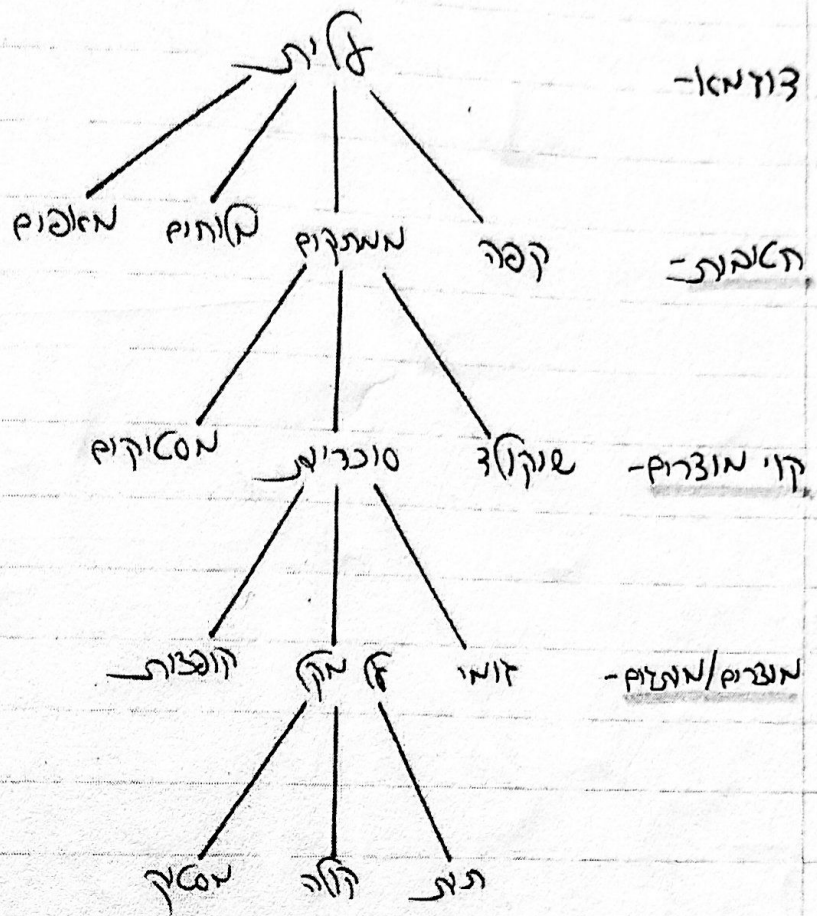 דוגמא- עלית
חטיבות- קפה ממתקים מלוחים מאפים
קווי מוצרים- שוקולד סוכריות מסטיקים
מוצרים/מותגים- גומי על מקל קופצות
תות קולה מסטיק